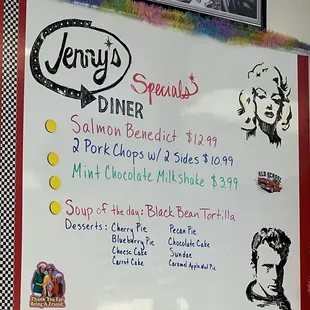 Jenny's
DINER
Specials
Salmon Benedict $12.99
2 Pork Chops w/ 2 Sides $10.99
Mint Chocolate Milkshake $3.99
Soup of the day: Black Bean Tortilla
Desserts: Cherry Pie Pecan Pie
Blueberry Pie Chocolate Cake
Cheese Cake Sundae
Carrot Cake Caramel Apple Nut Pie
OLD SCHOOL
Thank You For
Being A Friend